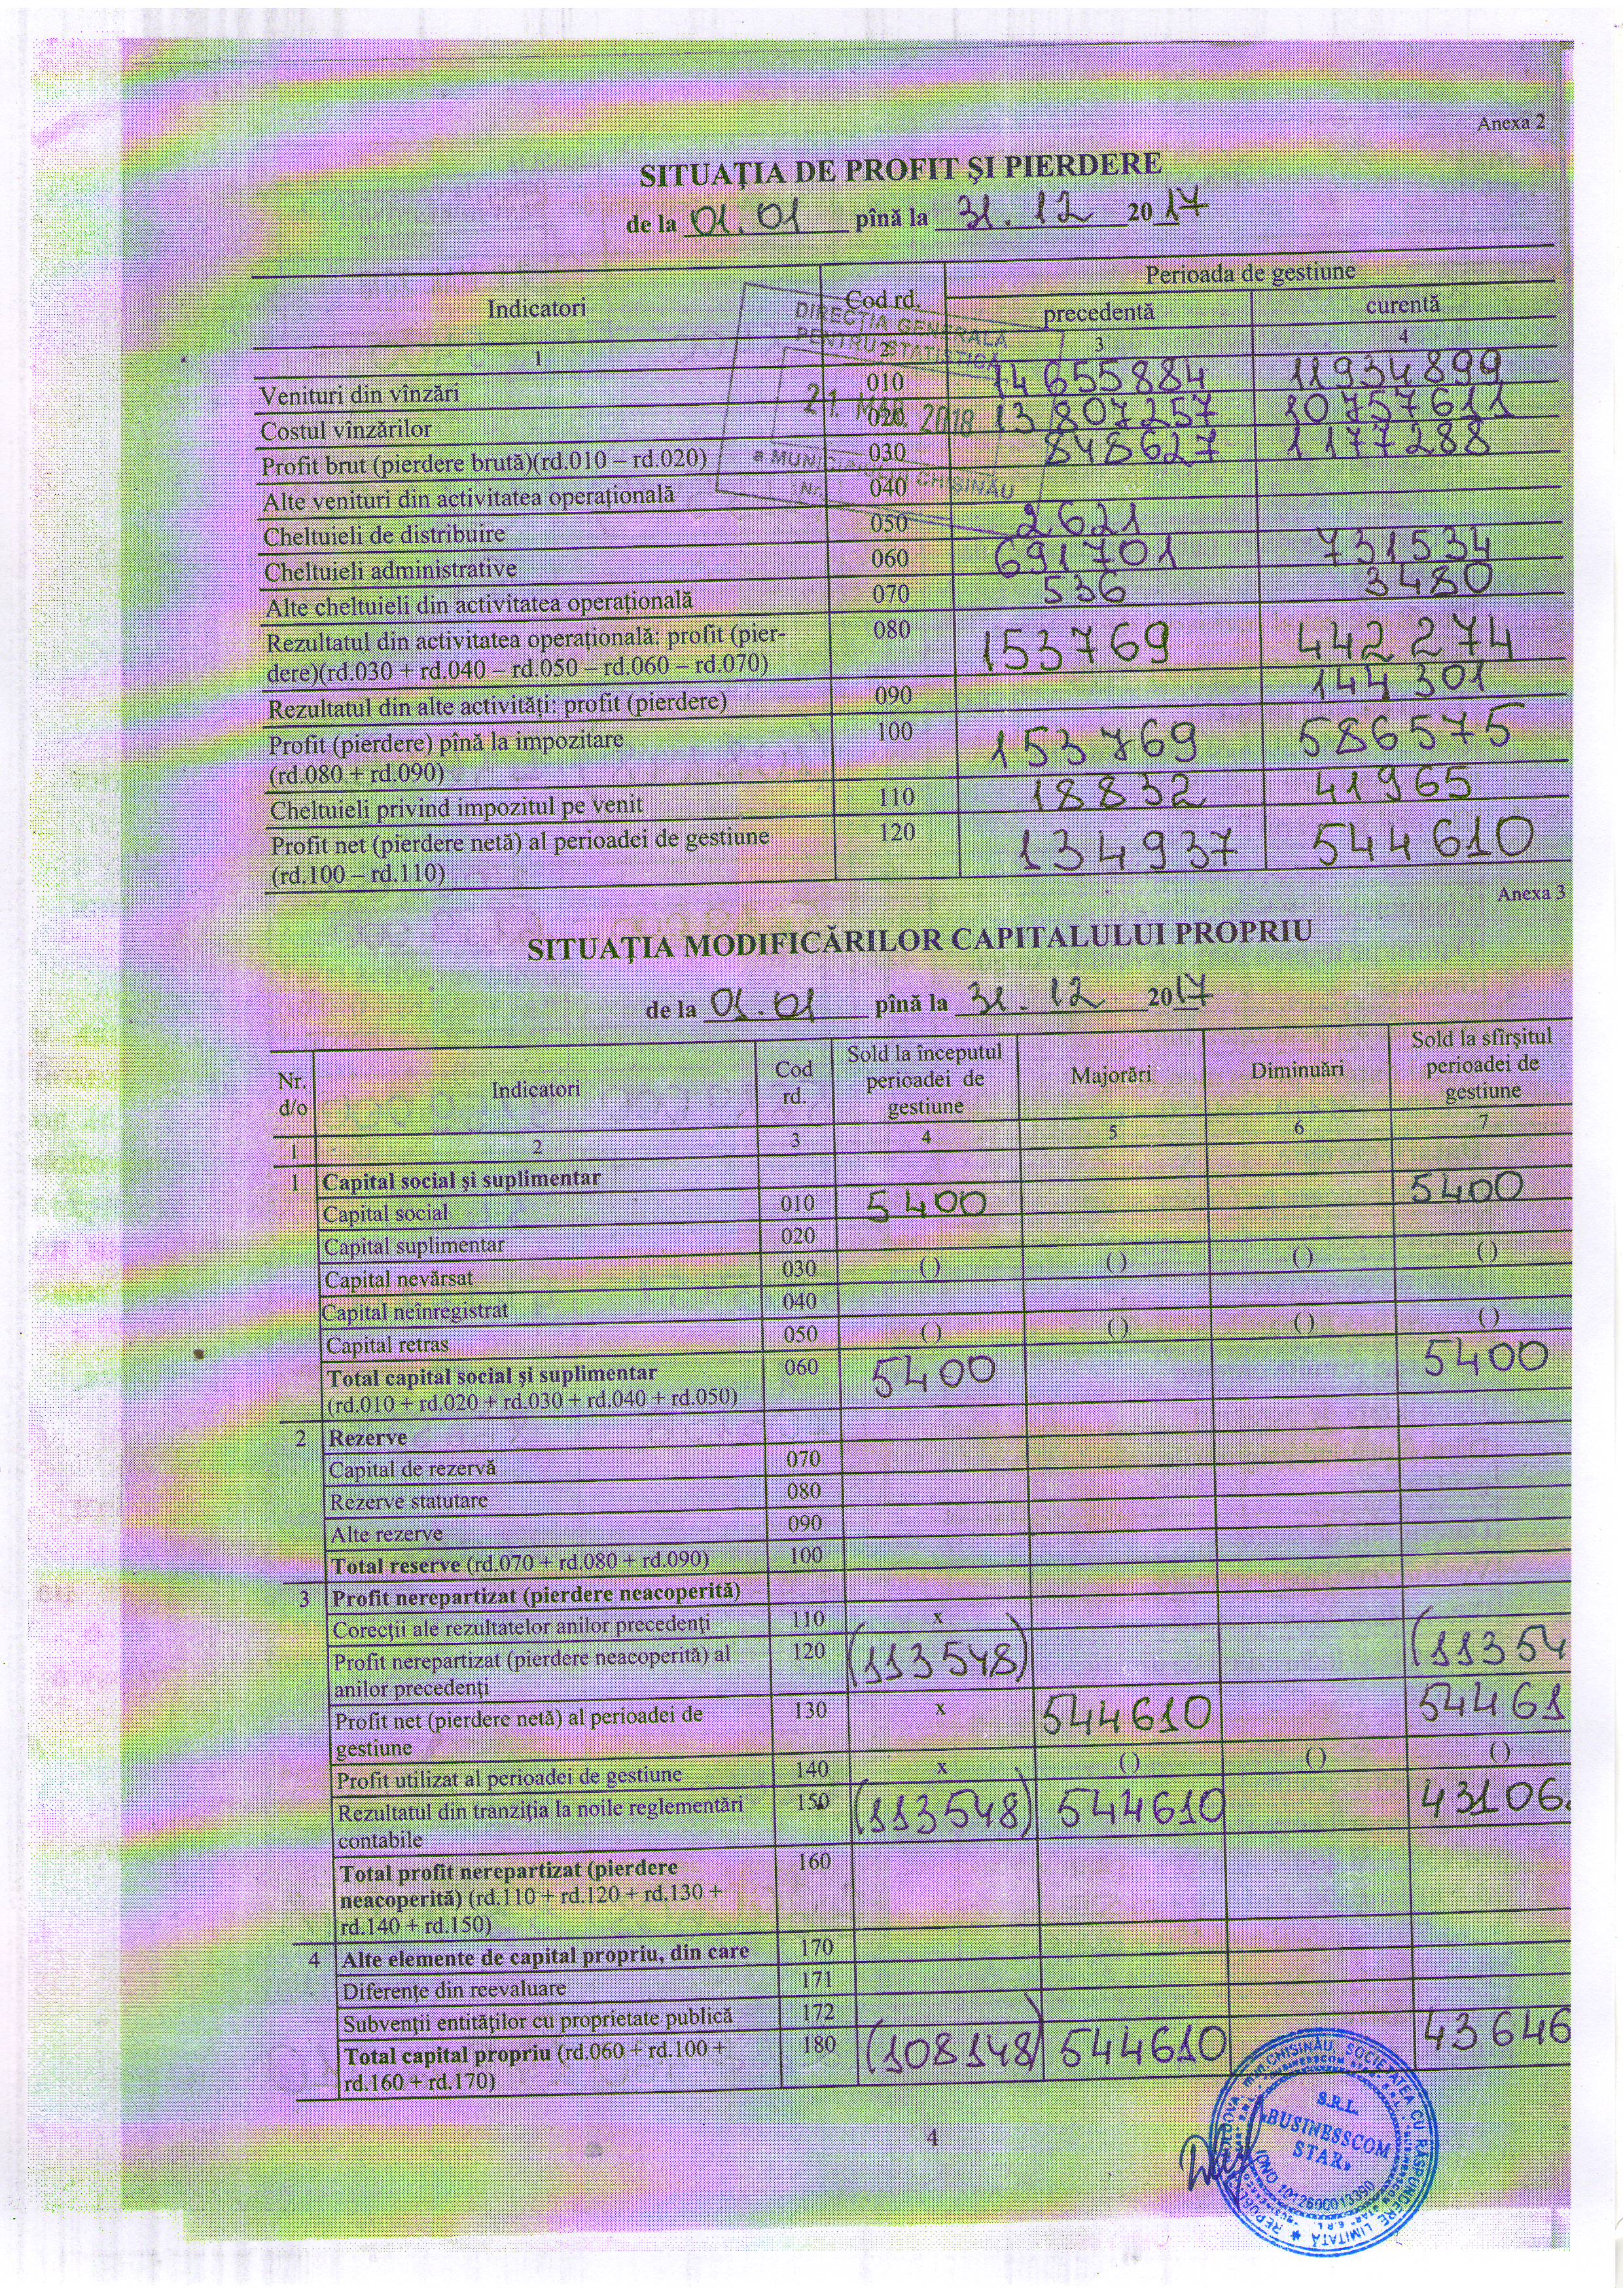 Anexa 2
SITUAŢIA DE PROFIT ŞI PIERDERE
de la 01.01 pînă la 31.12 2017
Indicatori Cod rd. Perioada de gestiune
precedentă curentă
1 2 3 4
Venituri din vînzări 010 14655884 11934899
Costul vînzărilor 020 13807257 10757611
Profit brut (pierdere brută)(rd.010 – rd.020) 030 848627 1177288
Alte venituri din activitatea operaţională 040
Cheltuieli de distribuire 050 2621
Cheltuieli administrative 060 691701 731534
Alte cheltuieli din activitatea operaţională 070 536 3480
Rezultatul din activitatea operaţională: profit (pier-
dere)(rd.030 + rd.040 – rd.050 – rd.060 – rd.070) 080 153769 442274
Rezultatul din alte activităţi: profit (pierdere) 090 144301
Profit (pierdere) pînă la impozitare
(rd.080 + rd.090) 100 153769 586575
Cheltuieli privind impozitul pe venit 110 18832 41965
Profit net (pierdere netă) al perioadei de gestiune
(rd.100 – rd.110) 120 134937 544610
DIRECŢIA GENERALĂ
PENTRU STATISTICĂ
21. MAR. 2018
a MUNICIPIULUI CHIŞINĂU
Nr.
Anexa 3
SITUAŢIA MODIFICĂRILOR CAPITALULUI PROPRIU
de la 01.01 pînă la 31.12 2017
Nr. d/o Indicatori Cod rd. Sold la începutul perioadei de gestiune Majorări Diminuări Sold la sfîrşitul perioadei de gestiune
1 2 3 4 5 6 7
1 Capital social şi suplimentar
Capital social 010 5400 5400
Capital suplimentar 020
Capital nevărsat 030 ( ) ( ) ( ) ( )
Capital neînregistrat 040
Capital retras 050 ( ) ( ) ( ) ( )
Total capital social şi suplimentar
(rd.010 + rd.020 + rd.030 + rd.040 + rd.050) 060 5400 5400
2 Rezerve
Capital de rezervă 070
Rezerve statutare 080
Alte rezerve 090
Total reserve (rd.070 + rd.080 + rd.090) 100
3 Profit nerepartizat (pierdere neacoperită)
Corecţii ale rezultatelor anilor precedenţi 110 x
Profit nerepartizat (pierdere neacoperită) al
anilor precedenţi 120 (113548) (11354
Profit net (pierdere netă) al perioadei de
gestiune 130 x 544610 54461
Profit utilizat al perioadei de gestiune 140 x ( ) ( ) ( )
Rezultatul din tranziţia la noile reglementări
contabile 150 (113548) 544610 43106
Total profit nerepartizat (pierdere
neacoperită) (rd.110 + rd.120 + rd.130 +
rd.140 + rd.150) 160
4 Alte elemente de capital propriu, din care 170
Diferenţe din reevaluare 171
Subvenţii entităţilor cu proprietate publică 172
Total capital propriu (rd.060 + rd.100 +
rd.160 + rd.170) 180 (108148) 544610 43646
4
S.R.L.
«BUSINESSCOM
STAR»
IDNO 1012600013390
CHIŞINĂU, SOCIETATEA CU RĂSPUNDERE LIMITATĂ